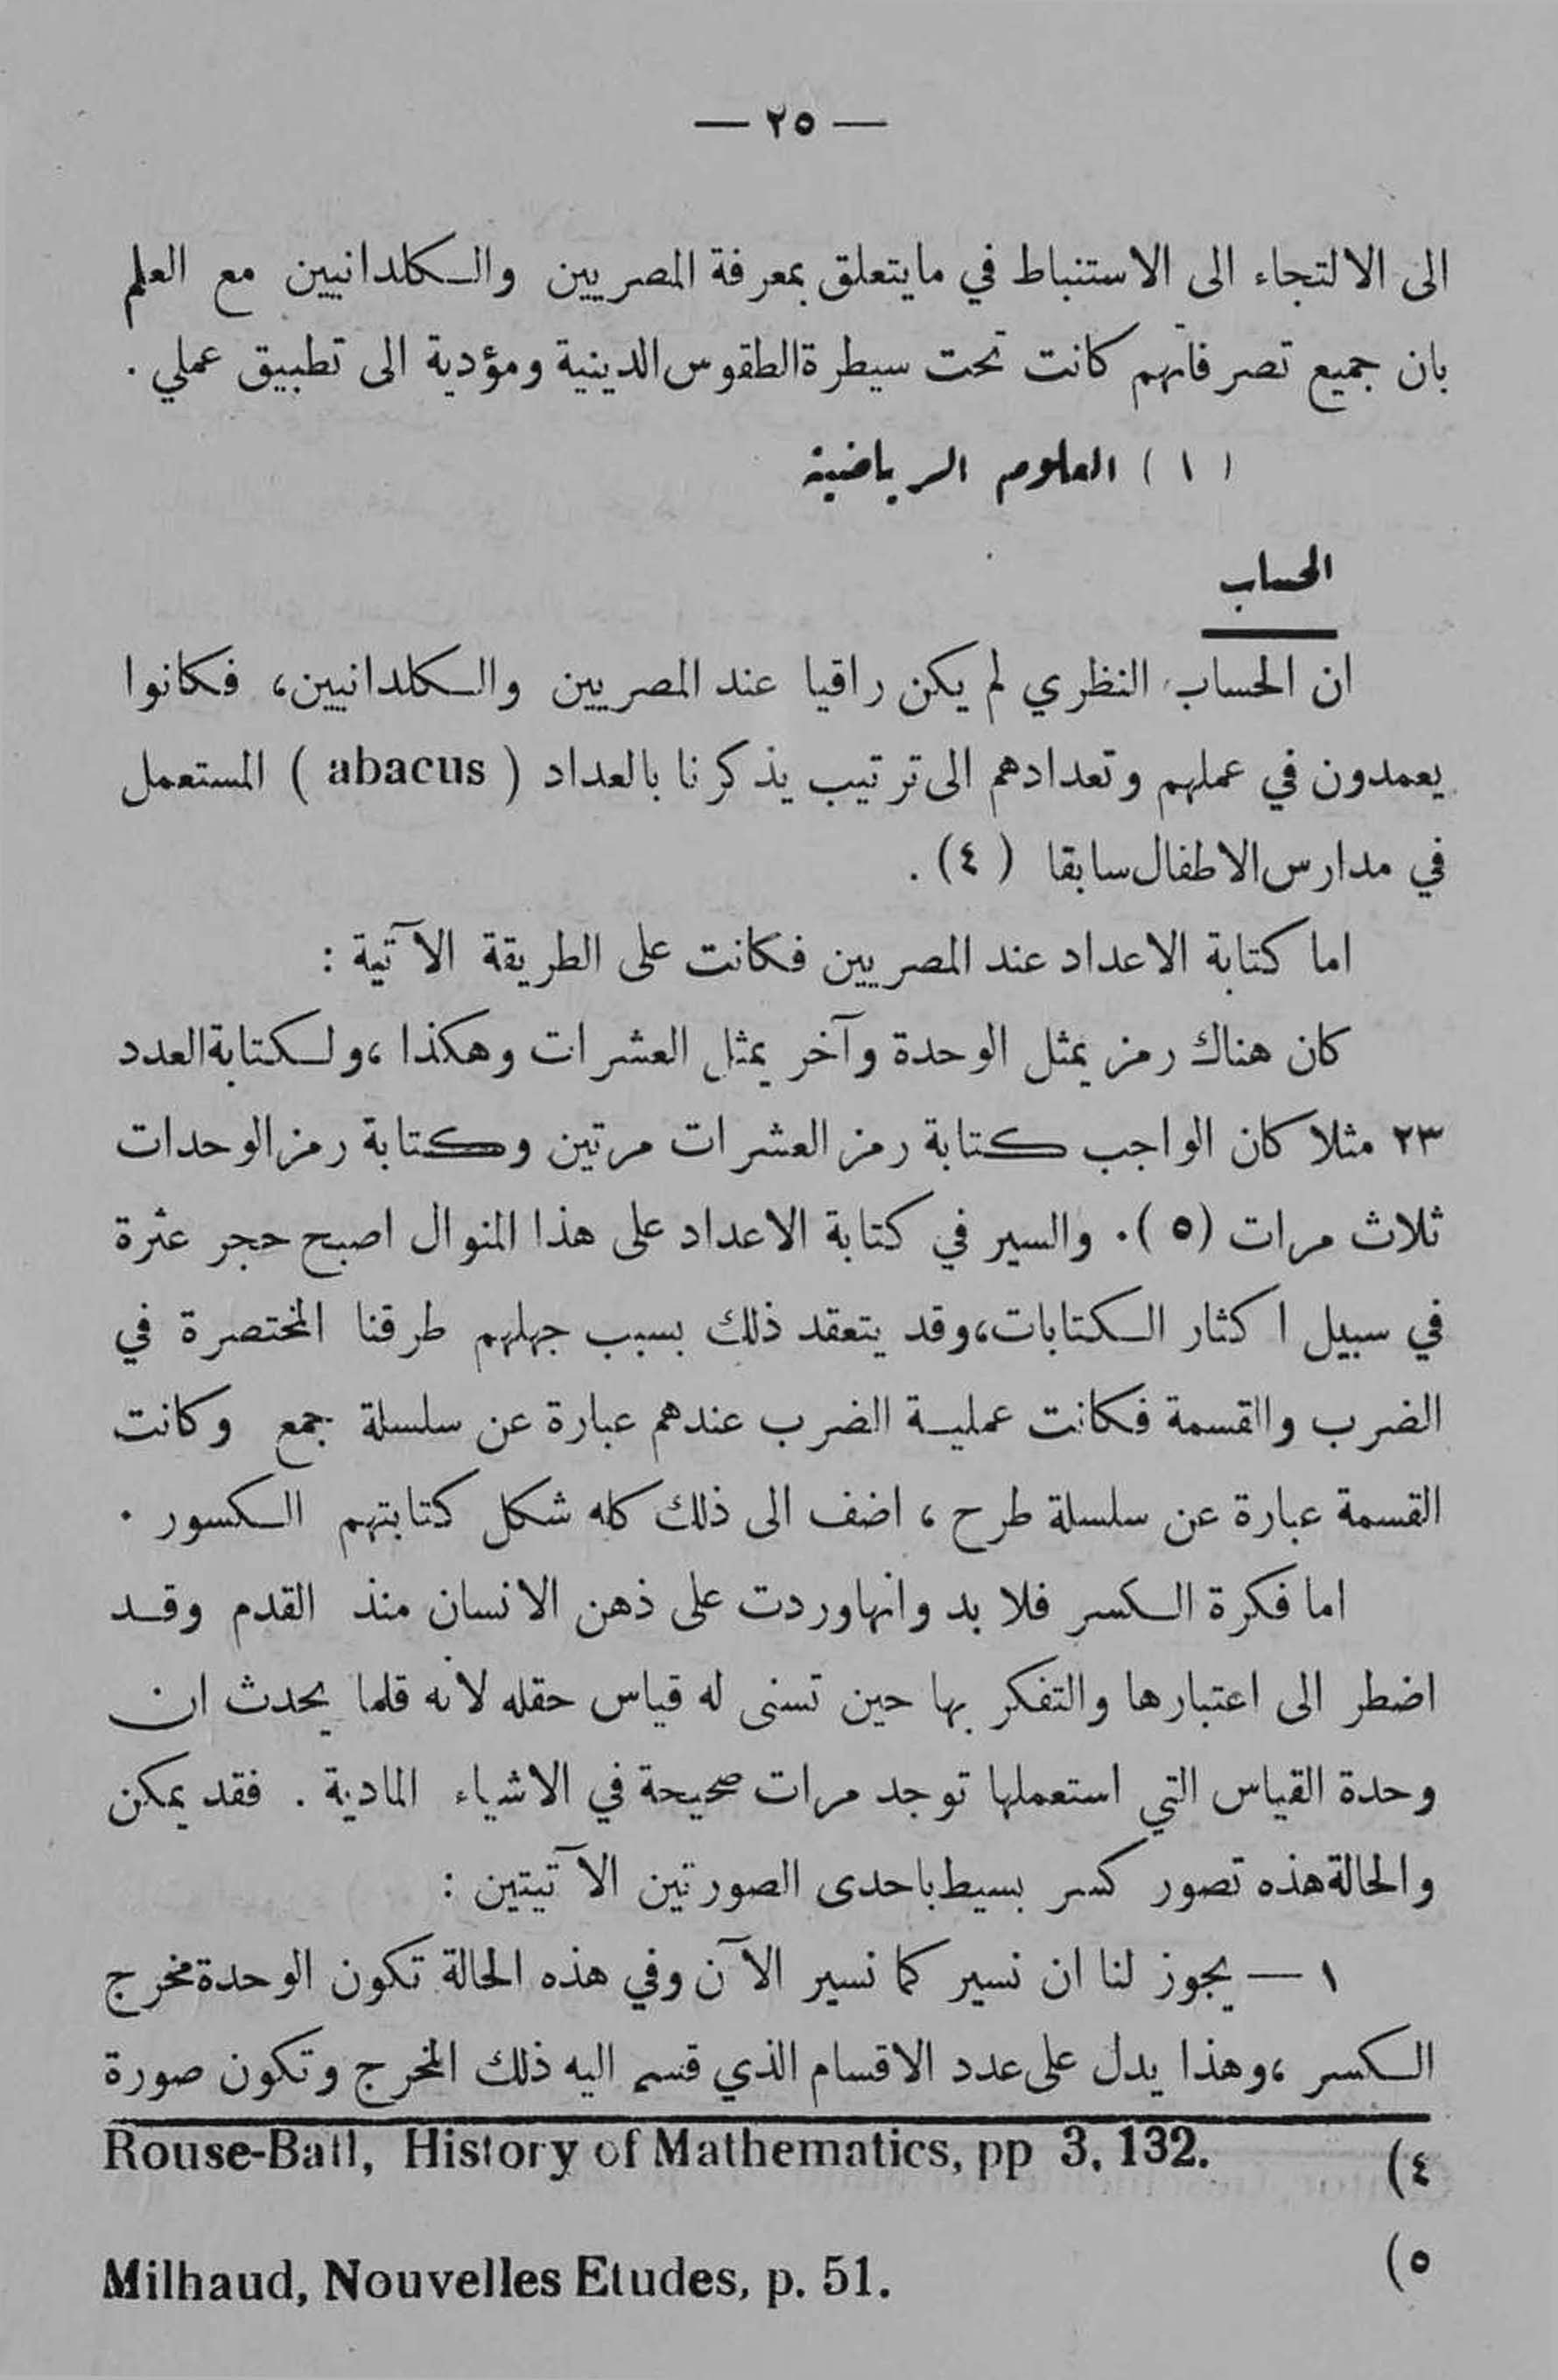 — ٢٥ —
الى الالتجاء الى الاستنباط في مايتعلق بمعرفة المصريين والكلدانيين مع العلم
بان جميع تصرفاتهم كانت تحت سيطرة الطقوس الدينية ومؤدية الى تطبيق عملي .
( ١ ) العلوم الرياضية
الحساب
ان الحساب النظري لم يكن راقيا عند المصريين والكلدانيين، فكانوا
يعمدون في عملهم وتعدادهم الى ترتيب يذكرنا بالعداد ( abacus ) المستعمل
في مدارس الاطفال سابقا ( ٤) .
اما كتابة الاعداد عند المصريين فكانت على الطريقة الآتية :
كان هناك رمز يمثل الوحدة وآخر يمثل العشرات وهكذا ، ولكتابة العدد
٢٣ مثلا كان الواجب كتابة رمز العشرات مرتين وكتابة رمز الوحدات
ثلاث مرات (٥ ). والسير في كتابة الاعداد على هذا المنوال اصبح حجر عثرة
في سبيل اكثار الكتابات، وقد يتعقد ذلك بسبب جهلهم طرقنا المختصرة في
الضرب والقسمة فكانت عملية الضرب عندهم عبارة عن سلسلة جمع وكانت
القسمة عبارة عن سلسلة طرح ، اضف الى ذلك كله شكل كتابتهم الكسور .
اما فكرة الكسر فلا بد وانها وردت على ذهن الانسان منذ القدم وقد
اضطر الى اعتبارها والتفكر بها حين تسنى له قياس حقله لانه قلما يحدث ان
وحدة القياس التي استعملها توجد مرات صحيحة في الاشياء المادية . فقد يمكن
والحالة هذه تصور كسر بسيط باحدى الصورتين الآتيتين :
١ — يجوز لنا ان نسير كما نسير الآن وفي هذه الحالة تكون الوحدة مخرج
الكسر ، وهذا يدل على عدد الاقسام الذي قسم اليه ذلك المخرج وتكون صورة
٤) Rouse-Ball, History of Mathematics, pp 3, 132.
٥) Milhaud, Nouvelles Etudes, p. 51.